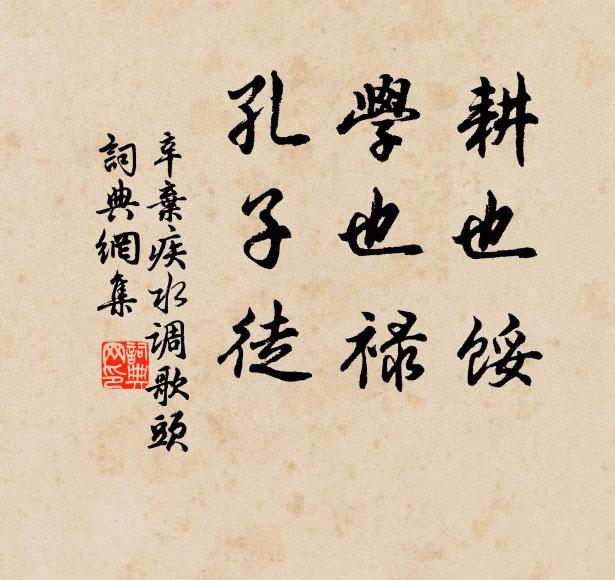 耕也馁
學也禄
孔子徒
辛棄疾水调歌頭
詞典網集
詞典網印